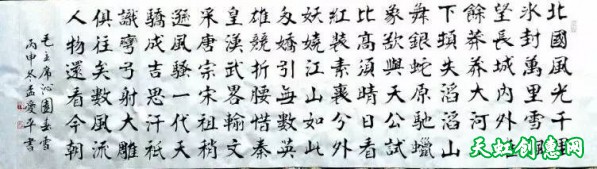 北國風光千里
冰封萬里雪飄
望長城內外惟
餘莽莽大河上
下頓失滔滔山
舞銀蛇原馳蠟
象欲與天公試
比高須晴日看
紅裝素裹分外
妖嬈江山如此
多嬌引無數英
雄競折腰惜秦
皇漢武略輸文
采唐宗宋祖稍
遜風騷一代天
驕成吉思汗祗
識彎弓射大雕
俱往矣數風流
人物還看今朝
毛主席沁園春雪
丙申冬孟愛平書
天虹创意网